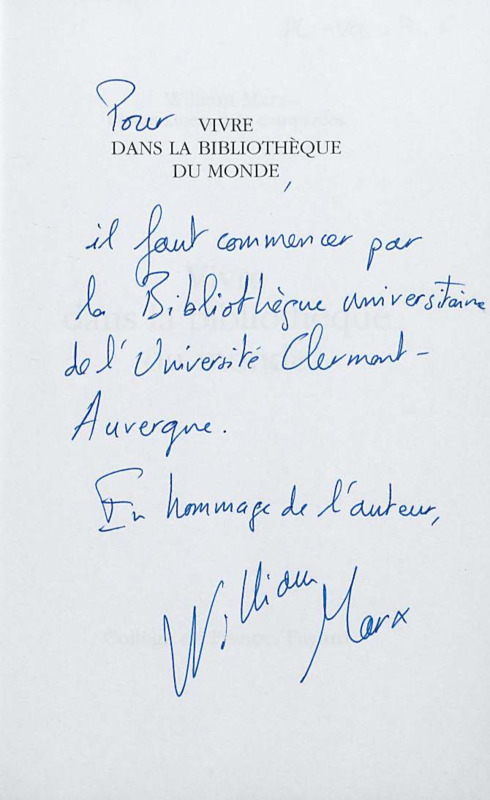 Pour VIVRE
DANS LA BIBLIOTHÈQUE
DU MONDE,
il faut commencer par
la Bibliothèque universitaire
de l'Université Clermont-
Auvergne.
En hommage de l'auteur,
William Marx